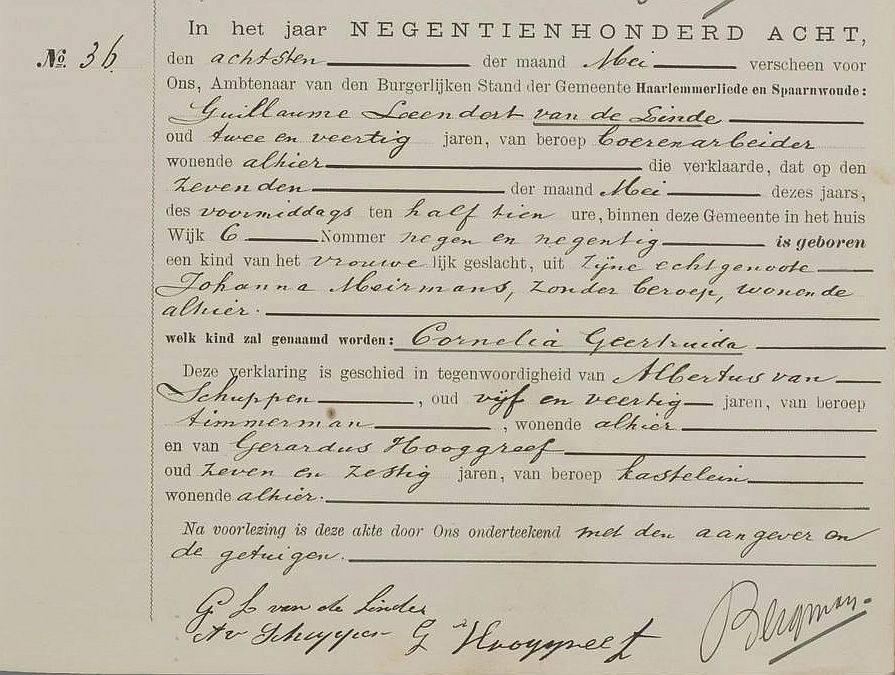 In het jaar NEGENTIENHONDERD ACHT,
No. 36.
den achtsten der maand Mei verscheen voor
Ons, Ambtenaar van den Burgerlijken Stand der Gemeente Haarlemmerliede en Spaarnwoude:
Guillaume Leendert van de Linde
oud twee en veertig jaren, van beroep boerenarbeider
wonende alhier die verklaarde, dat op den
zevenden der maand Mei dezes jaars,
des voormiddags ten half tien ure, binnen deze Gemeente in het huis
Wijk C Nommer negen en negentig is geboren
een kind van het vrouwelijk geslacht, uit zijne echtgenoote
Johanna Meirmans, zonder beroep, wonende
alhier.
welk kind zal genaamd worden: Cornelia Geertruida
Deze verklaring is geschied in tegenwoordigheid van Albertus van
Schuppen, oud vijf en veertig jaren, van beroep
timmerman, wonende alhier
en van Gerardus Hooggreef
oud zeven en zestig jaren, van beroep kastelein
wonende alhier.
Na voorlezing is deze akte door Ons onderteekend met den aangever en
de getuigen.
G L van de Linde
A v Schuppen G Hooggreef
Bergman